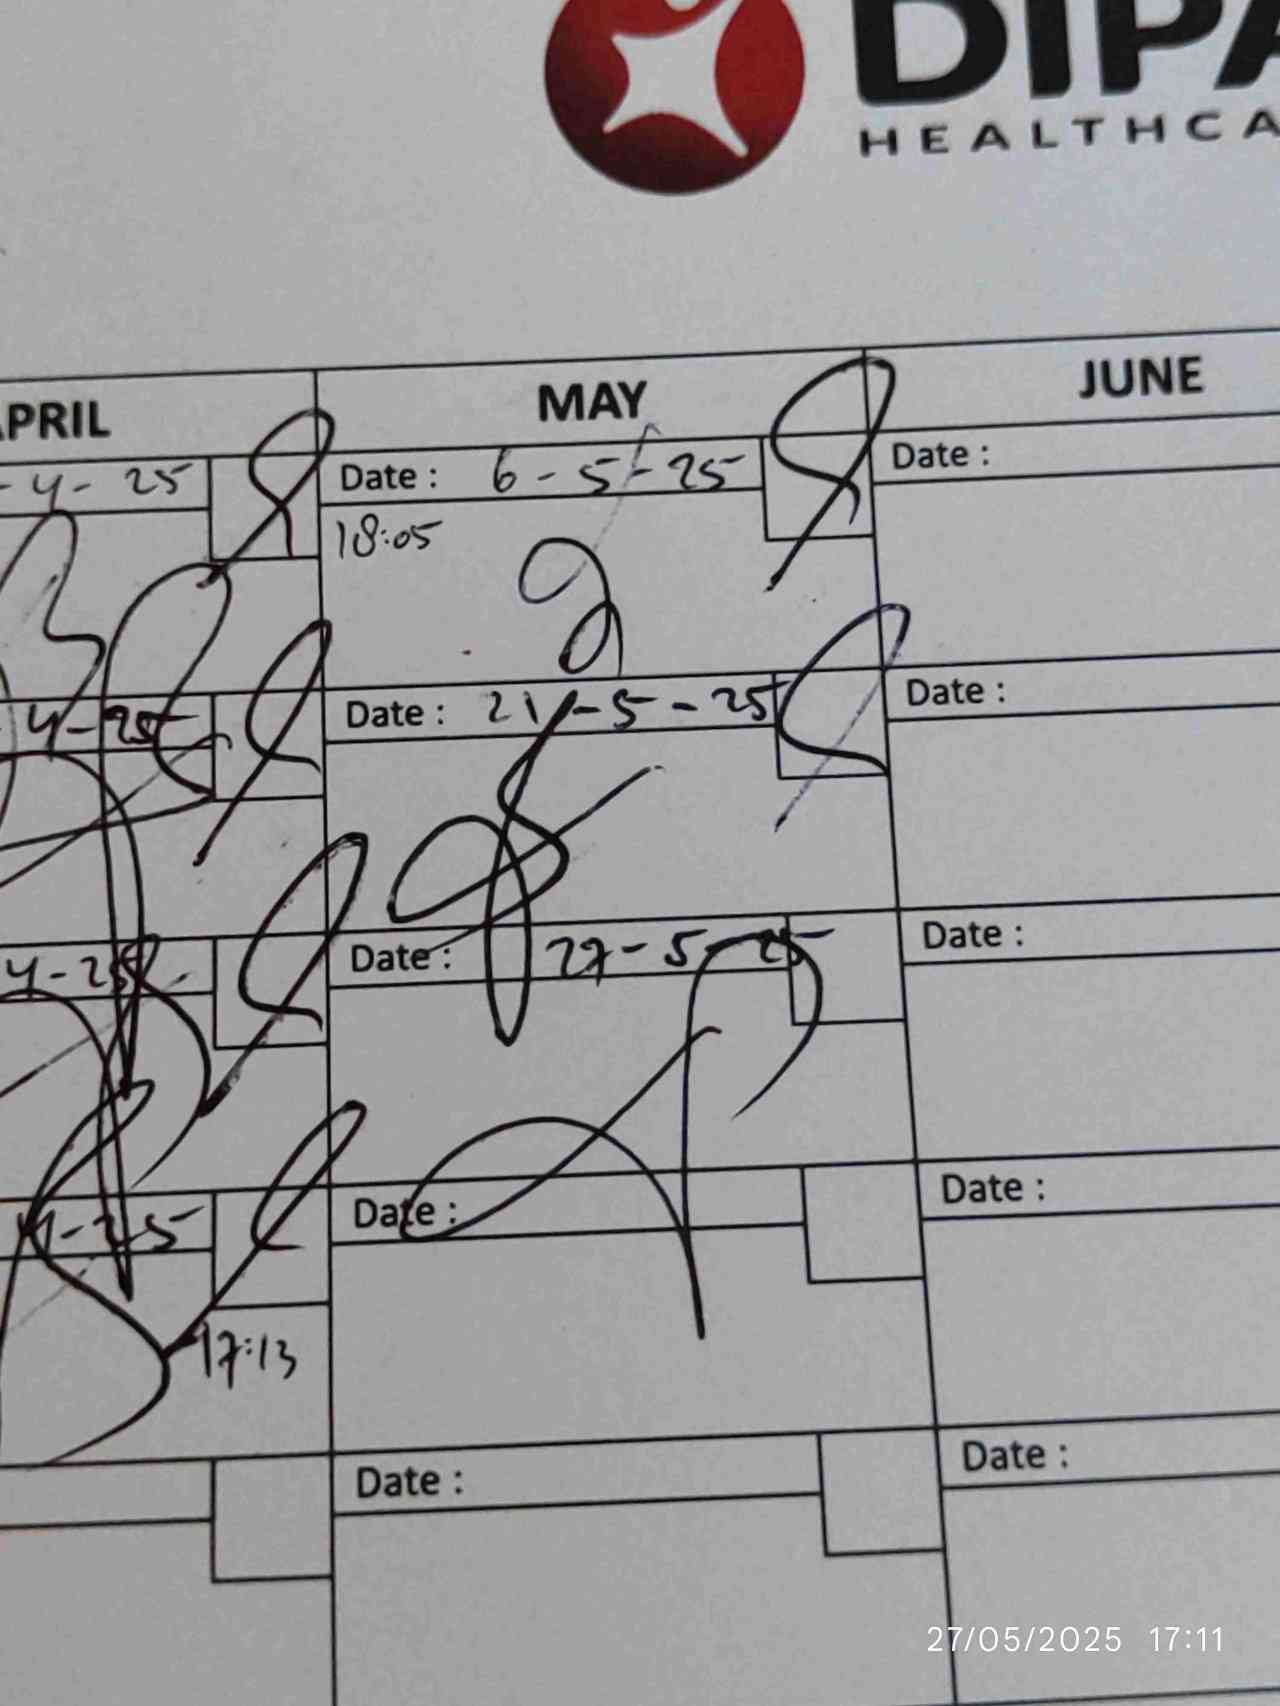 DIPA
HEALTHCA
APRIL
MAY
JUNE
-4-25
Date : 6-5-25
Date :
18:05
4-25
Date : 21-5-25
Date :
4-25
Date : 27-5-25
Date :
4-25
Date :
Date :
17:13
Date :
Date :
27/05/2025 17:11